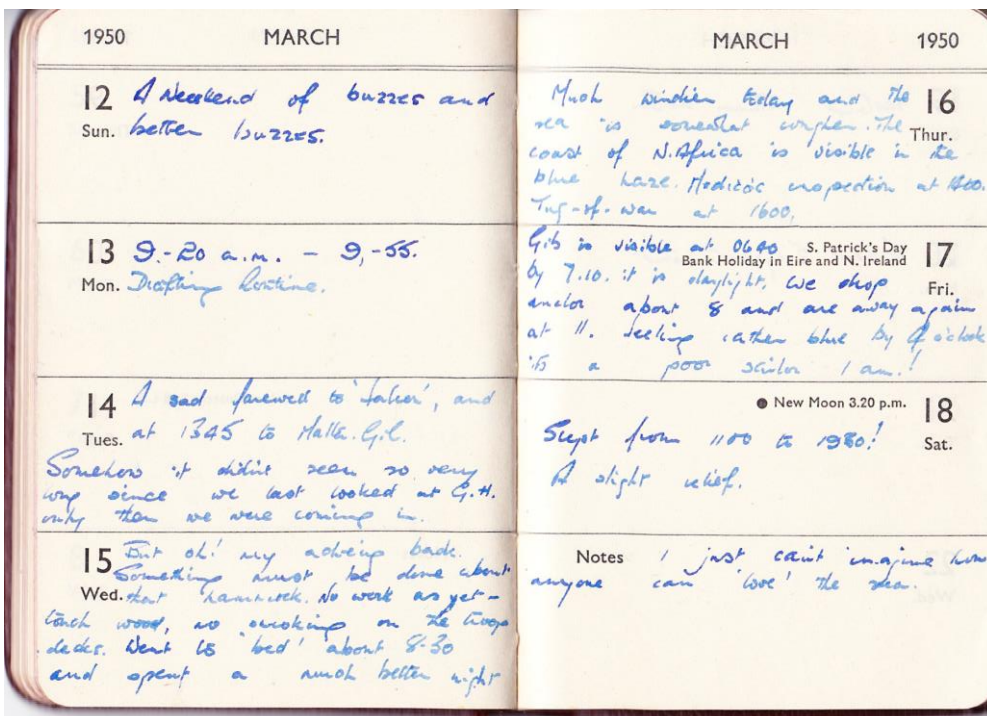 1950 MARCH
12 Sun. A Weekend of buzzes and
better buzzes.
13 Mon. 9.-20 a.m. - 9,-55.
Drafting Routine.
14 Tues. A sad farewell to 'father', and
at 1345 to Malta. G.C.
Somehow it didn't seem so very
long since we last looked at G.H.
only then we were coming in.
15 Wed. But oh! my aching back.
Something must be done about
that hammock. No work as yet -
touch wood, no smoking on the troop
decks. Went to 'bed' about 8-30
and spent a much better night
MARCH 1950
16 Thur. Much windier today and the
sea is somewhat rougher. The
coast of N. Africa is visible in the
blue haze. inspection at
Tug-of-war at 1600.
17 Fri. S. Patrick's Day
Bank Holiday in Eire and N. Ireland
Gib is visible at 0640
by 7.10. it is daylight. We drop
anchor about 8 and are away again
at 11. feeling rather blue by o'clock
its a poor sailor I am.!
18 Sat. ● New Moon 3.20 p.m.
Slept from 1100 to 1930!
A slight relief.
Notes I just can't imagine how
anyone can 'love' the sea.